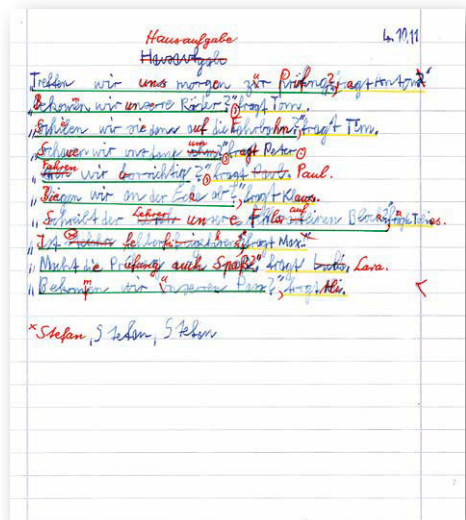 Hausaufgabe 4.10.11
Hausaufgabe
„Treffen wir uns morgen zur Prüfung?", fragt Anton. x
„Bekommen wir unsere Räder?", fragt Tom.
wir sie dann auf die Fahrbahn?", fragt Tim.
„Schauen wir uns dann um?", fragt Peter.
„Fahren wir vorsichtig?", fragt Paul. Paul.
„Biegen wir an der Ecke ab?", fragt Klaus.
„Schreibt der Lehrer unsere Fehler auf seinen Block?", fragt
„Ist fragt Max.
„Macht die Prüfung auch Spaß?", fragt Lara.
„Bekommen wir unseren Pass?", fragt
x Stefan, Stefan, Stefan